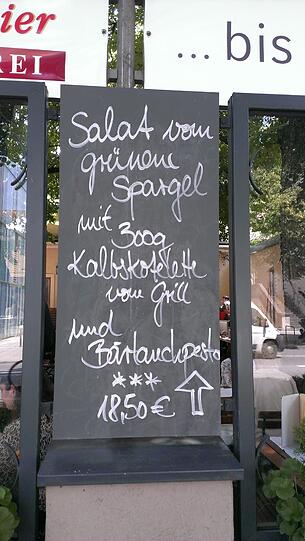 ier
REI
... bis
Salat vom
grünem
Spargel
mit
300g
Kalbskotelette
vom Grill
und
Bärlauchpesto
***
18,50 €